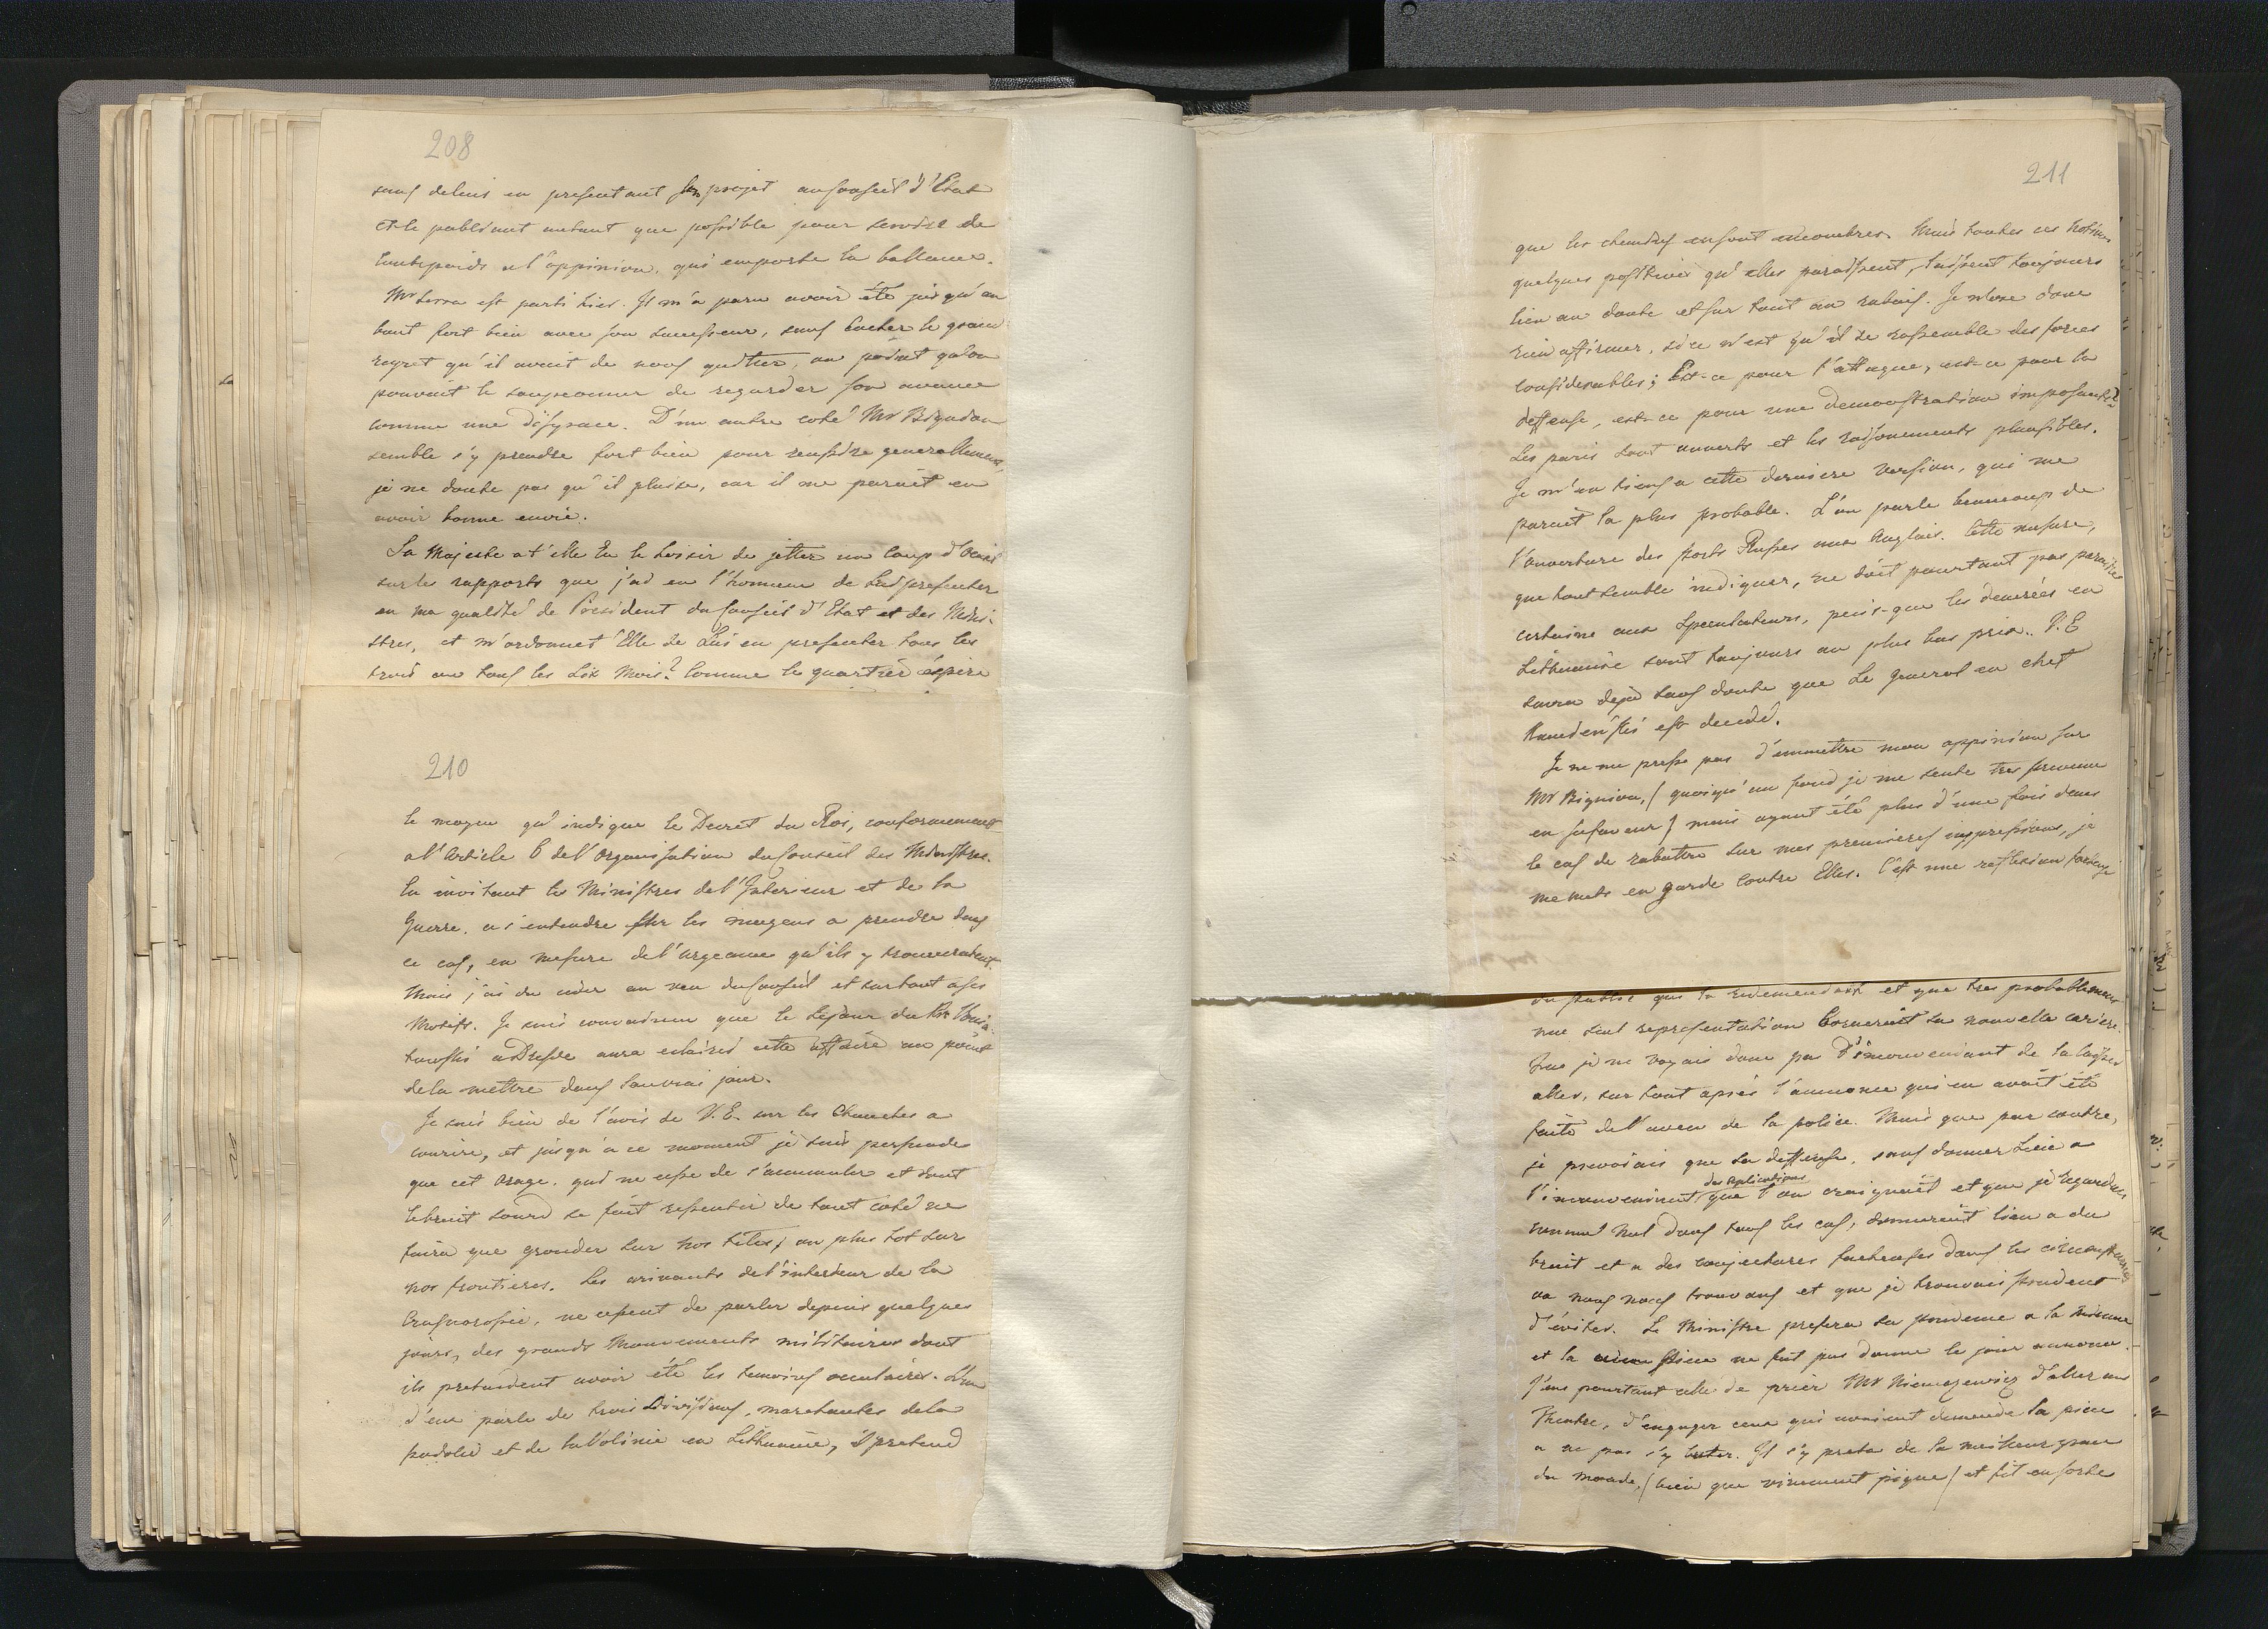 208
sans delais en presentant son projet au Conseil d'Etat
et le publiant autant que possible pour servir de
contrepoids a l'oppinion, qui emporte la ballance.
Mr Serra est parti hier. Il m'a paru avoir été jusqu'au
bout fort bien avec son successeur, sans cacher le grand
regret qu'il avait de nous quitter, au point qu'on
pouvait le soupçonner de regarder son avance
comme une disgrace. D'un autre coté Mr Bignon
semble s'y prendre fort bien pour reussire generallement,
je ne doute pas qu'il plaise, car il me parait en
avoir bonne envie.
Sa Majesté a t'elle Eu le Loisir de jetter un Coup d'Oeuil
sur les rapports que j'ai eu l'honneur de Lui presenter
en ma qualité de President du Conseil d'Etat et des Mini-
stres, et m'ordonnet'Elle de Lui en presenter tous les
trois ou tous les six mois? Comme le quartier expire
210
le moyen qu'indique le Decret du Roi, conformement
a l'Article 6 de l'Organisation du Conseil des Ministres.
En invitant les Ministres de l'Interieur et de la
Guerre, a s'entendre sur les moyens a prendre dans
ce cas, en mesure de l'urgence qu'ils y trouveraient.
Mais j'ai du ceder au veu du Conseil et surtout a ses
Motifs. Je suis convaincu que le Sejour du Pce Ponia-
towski a Dresde aura eclairci cette affaire au point
de la mettre dans son vrai jour.
Je suis bien de l'avis de V. E. sur les Chances a
courire, et jusqu'a ce moment je suis persuadé
que cet orage, qui ne cesse de s'accumuler et dont
le bruit sourd se fait ressentir de tout coté ne
faira que gronder sur nos têtes, ou plus tot sur
nos frontieres. Les arrivants de l'interieur de la
ne cessent de parler depuis quelques
jours, des grands Mouvements militaires dont
ils pretendent avoir été les temoins occulaires. L'un
d'eux parle de trois Divisions, marchantes de la
Podolie et de la Volinie en Lithuanie, il pretend
211
que les chemins en sont encombres. Mais toutes ces notions
quelques positives qu'elles paraissent, laissent toujours
lieu au doute et sur tout au rabais. Je n'ose donc
rien affirmer, si ce n'est qu'il se rassemble des forces
considerables; Est-ce pour l'attaque, est-ce pour la
deffense, est-ce pour une demonstration imposante?
Les paris sont ouverts et les raisonements plausibles.
Je m'en tiens a cette derniere version, qui me
parait la plus probable. L'on parle beaucoup de
l'ouverture des ports Russes aux Anglais. Cette mesure,
que tout semble indiquer, ne doit pourtant pas paraitre
certaine aux Speculateurs, puis-que les denrées en
Lithuanie sont toujours au plus bas prix. V. E
saura dejà sans doute que Le General en chef
Kamenski est decedé.
Je ne me presse pas d'emmettre mon oppinion sur
Mr Bignion, (quoiqu'au fond je me sente tres prevenu
en sa faveur) mais ayant été plus d'une fois dans
le cas de rabattre sur mes premieres impressions, je
me mets en garde contre Elles. C'est une reflexion
du public qui la redemendait et que tres probablement
une seul representation borneroit sa nouvelle cariere.
Que je ne voyais donc pas d'inconveniant de la laisser
aller, sur tout après l'annonce qui en avait été
faite de l'aveu de la police. Mais que par contre,
je prevoiais que sa deffense, sans donner Lieu a
des aplications
l'inconvenient que l'on craignait et que je regardais
comme nul dans tous les cas, donnerait lieu a du
bruit et a des conjectures facheuses dans les circonstances
ou nous nous trouvons et que je trouvais prudent
d'éviter. Le Ministre prefera sa prudence a la mienne
et la piece ne fut pas donné le jour annoncé.
J'eus pourtant celle de prier Mr Niemczewicz d'aller au
Theatre, d'engager ceux qui avaient demendé la piece
a ne pas s'y buter. Il s'y preta de la meilleur grace
du monde, (bien que vivement piqué) et fit en sorte